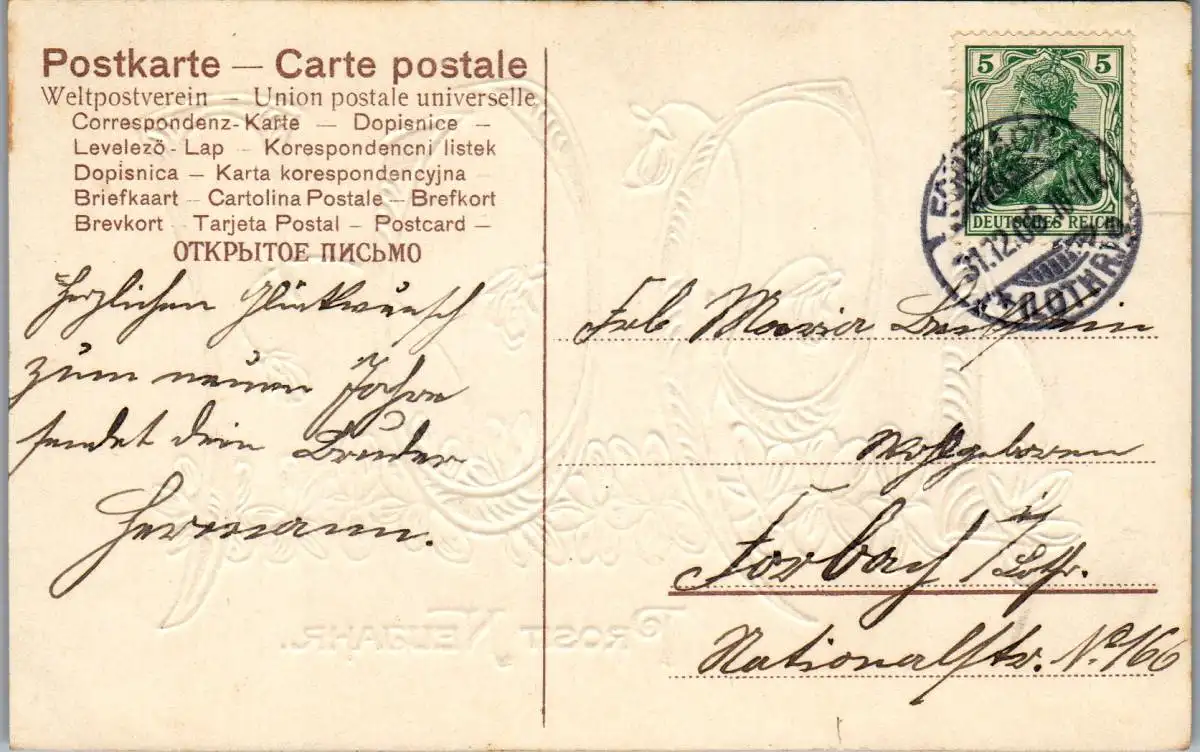 Postkarte — Carte postale
Weltpostverein — Union postale universelle
Correspondenz-Karte — Dopisnice —
Levelező-Lap — Korespondencni listek
Dopisnica — Karta korespondencyjna —
Briefkaart — Cartolina Postale — Brefkort
Brevkort — Tarjeta Postal — Postcard —
ОТКРЫТОЕ ПИСЬМО
Herzlichen Glückwunsch
zum neuen Jahre
sendet dein Bruder
Hermann.
5 5
DEUTSCHES REICH
FORBACH
31.12.06
(LOTHR.)
Frl Maria
Wohlgeboren
Forbach i/ Lothr.
Nationalstr. No 166
PROSIT NEUJAHR.